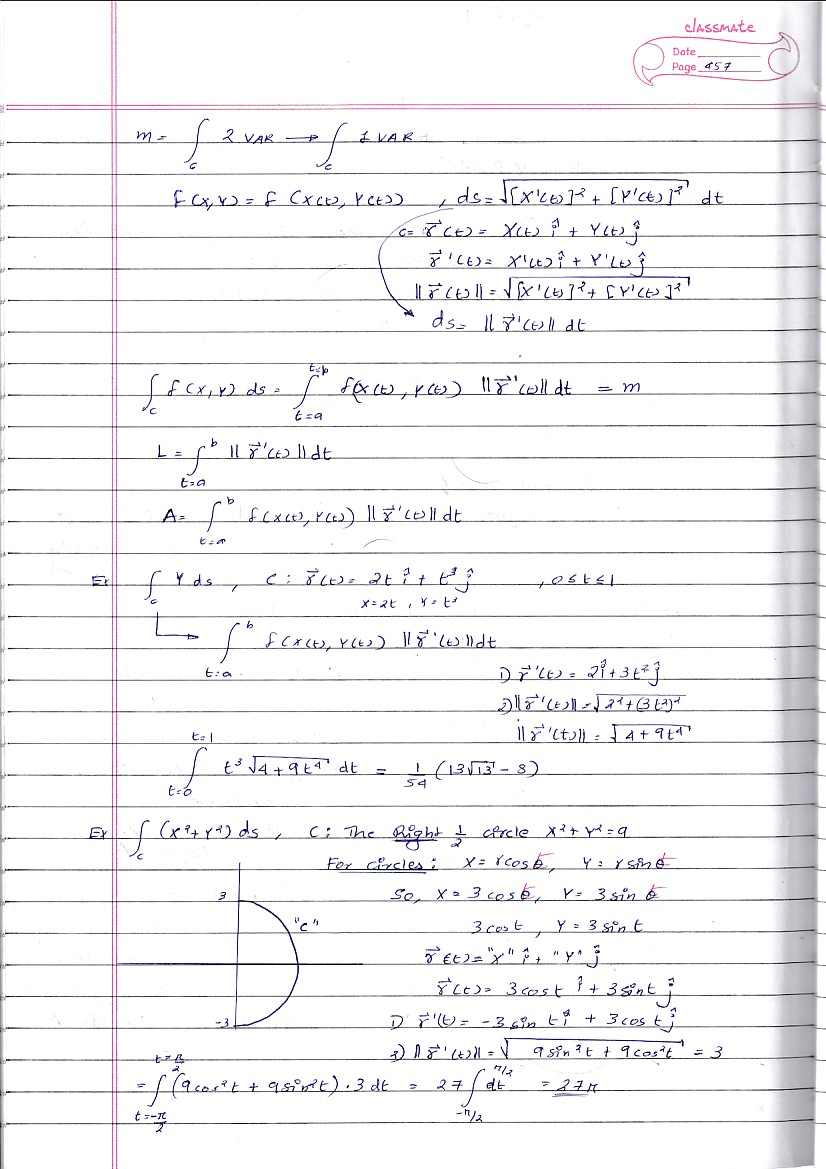 classmate
Date
Page 457
m = ∫_C 2 VAR → ∫_C 1 VAR
f(x,y) = f(x(t), y(t)) , ds = √([x'(t)]² + [y'(t)]²) dt
C = r⃗(t) = x(t) î + y(t) ĵ
r⃗'(t) = x'(t) î + y'(t) ĵ
||r⃗(t)|| = √([x'(t)]² + [y'(t)]²)
ds = ||r⃗'(t)|| dt
∫_C f(x,y) ds = ∫_{t=a}^{t=b} f(x(t), y(t)) ||r⃗'(t)|| dt = m
L = ∫_{t=a}^{b} ||r⃗'(t)|| dt
A = ∫_{t=a}^{b} f(x(t), y(t)) ||r⃗'(t)|| dt
Ex ∫_C y ds , C : r⃗(t) = 2t î + t³ ĵ , 0 ≤ t ≤ 1
x = 2t , y = t³
→ ∫_{t=a}^{b} f(x(t), y(t)) ||r⃗'(t)|| dt
1) r⃗'(t) = 2î + 3t² ĵ
2) ||r⃗'(t)|| = √(2² + (3t²)²)
||r⃗'(t)|| = √(4 + 9t⁴)
∫_{t=0}^{t=1} t³ √(4 + 9t⁴) dt = 1/54 (13√13 - 8)
Ex ∫_C (x² + y²) ds , C : The Right 1/2 circle x² + y² = 9
For circles : x = r cos t, y = r sin t
So, x = 3 cos t, y = 3 sin t
3 "C" -3
3 cos t , y = 3 sin t
r⃗(t) = "x" î + "y" ĵ
r⃗(t) = 3 cos t î + 3 sin t ĵ
1) r⃗'(t) = -3 sin t î + 3 cos t ĵ
2) ||r⃗'(t)|| = √(9 sin² t + 9 cos² t) = 3
= ∫_{t=-π/2}^{t=π/2} (9 cos² t + 9 sin² t) · 3 dt = 27 ∫_{-π/2}^{π/2} dt = 27π